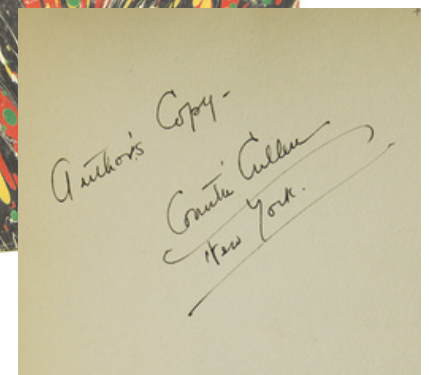 Author's Copy -
Countée Cullen
New York.